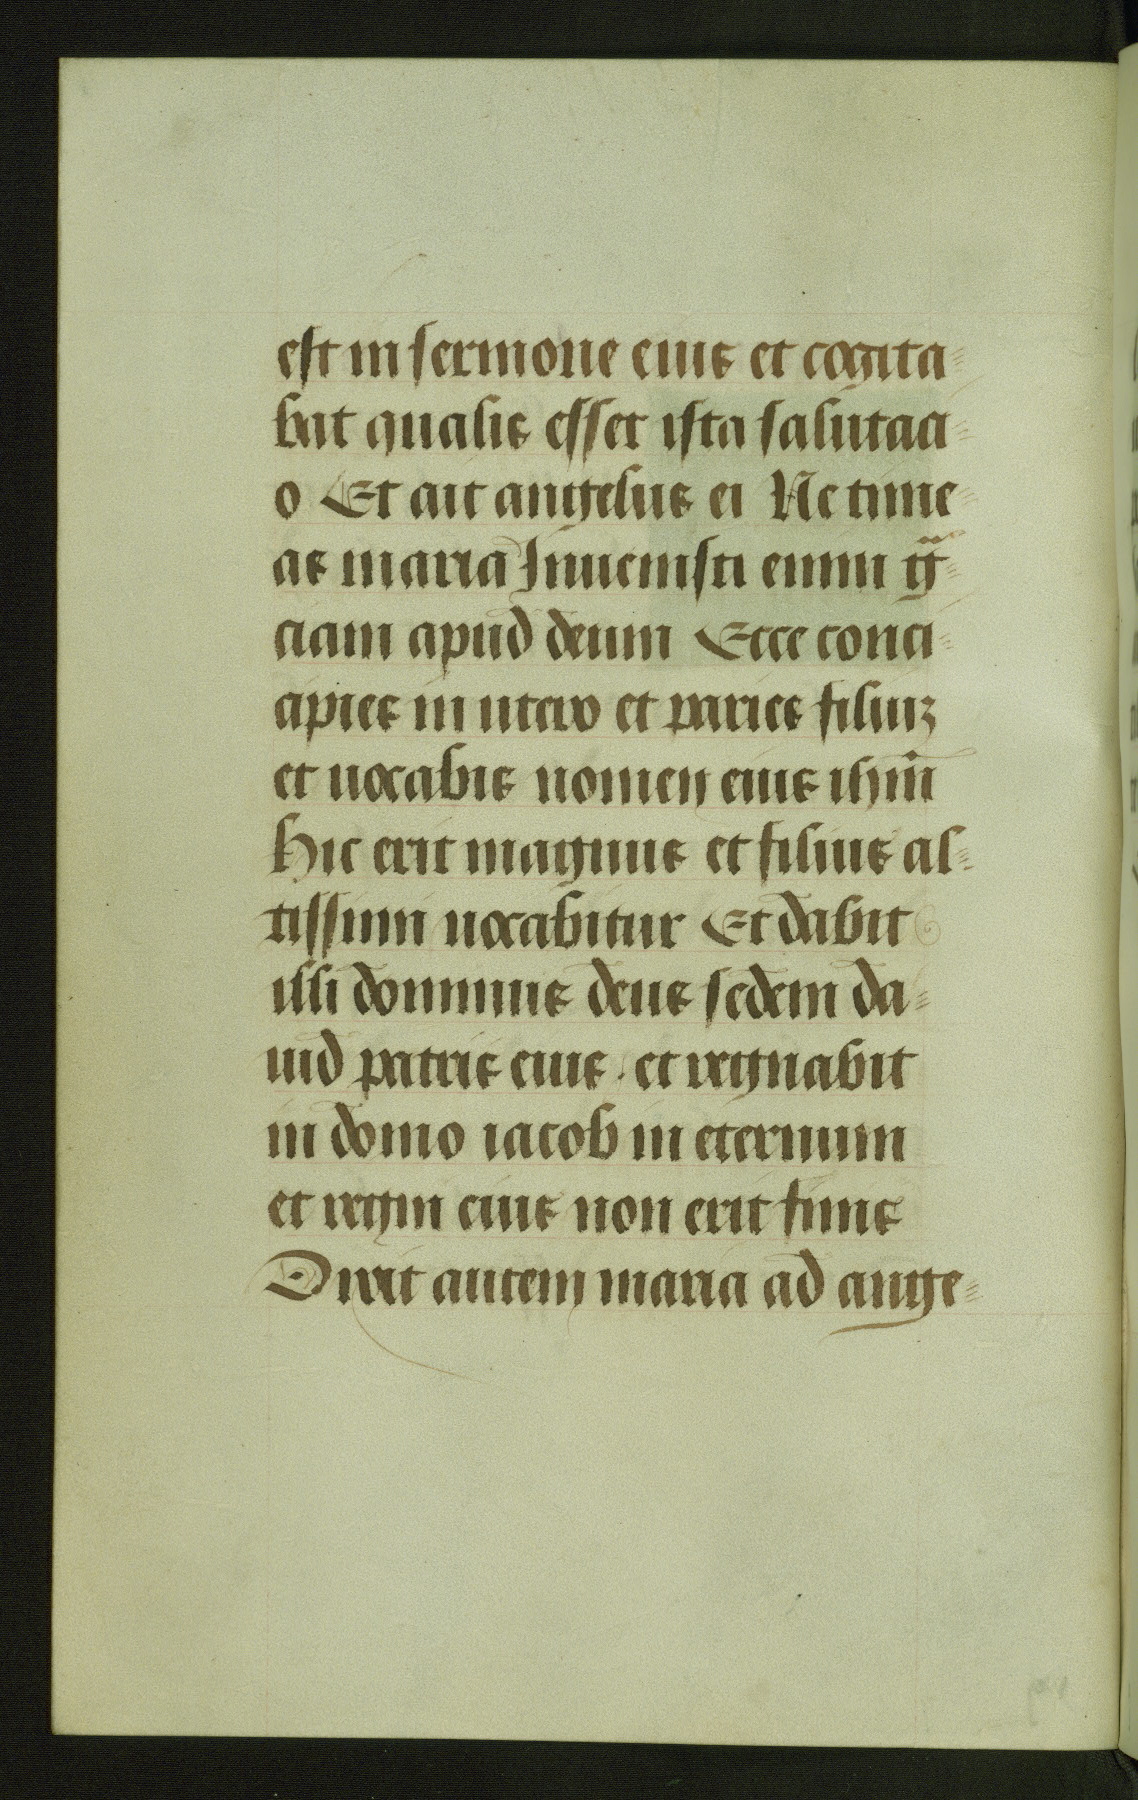 est in sermone eius et cogita=
bat qualis esset ista salutaci=
o Et ait angelus ei Ne time=
as maria Inuenisti enim gͣ=
ciam apud deum Ecce conci=
cipies in utero et paries filiuꝫ
et uocabis nomen eius ihm̄
Hic erit magnus et filius al=
tissimi uocabitur Et dabit
illi dominus deus sedem da=
uid patris eius . et regnabit
in domo iacob in eternum
et regni eius non erit finis
Dixit autem maria ad ange=